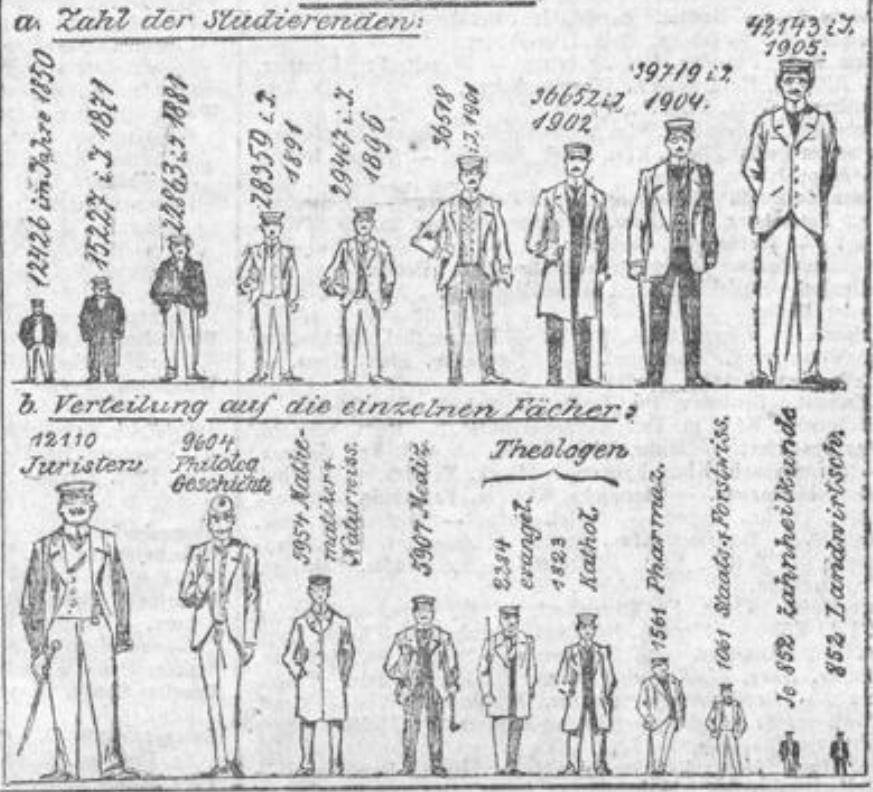 a. Zahl der Studierenden:
12426 im Jahre 1850
15227 i. J. 1871
22863 i. J. 1881
28359 i. J.
1891
29467 i. J.
1896
36518
i. J. 1901
36652 i. J.
1902
39719 i. J.
1904.
42143 i. J.
1905.
b. Verteilung auf die einzelnen Fächer:
12110
Juristen
9604
Philolog
Geschichte
5954 Mathe-
matiker u.
Naturwiss.
5907 Mediz.
Theologen
2254
evangel.
1823
Kathol.
1561 Pharmaz.
1061 Staats- u. Forstwiss.
Je 852 Zahnheilkunde
852 Landwirtsch.